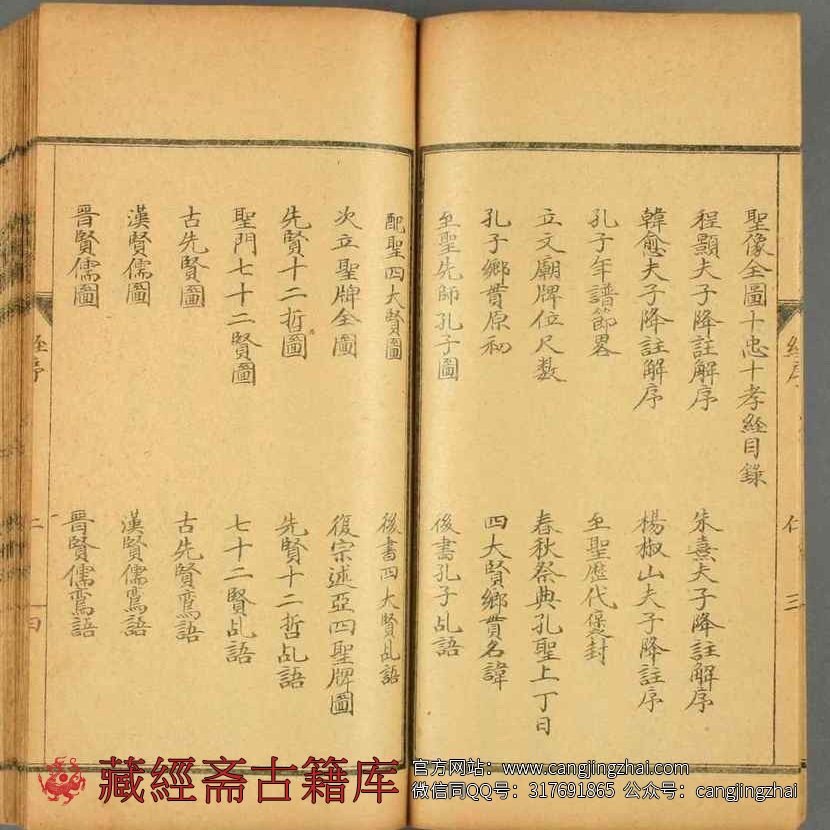 聖像全圖十忠十孝經目錄
程顥夫子降註解序
朱熹夫子降註解序
韓愈夫子降註解序
楊椒山夫子降註序
孔子年譜節畧
至聖歷代褒封
立文廟牌位尺數
春秋祭典孔聖上丁日
孔子鄉貫原初
四大賢鄉貫名諱
至聖先師孔子圖
後書孔子乩語
配聖四大賢圖
後書四大賢乩語
次立聖牌全圖
復宗述亞四聖牌圖
先賢十二哲圖
先賢十二哲乩語
聖門七十二賢圖
七十二賢乩語
古先賢圖
古先賢鸞語
漢賢儒圖
漢賢儒鸞語
晉賢儒圖
晉賢儒鸞語
經序
仁
三
經序
仁
四
藏經斋古籍库
官方网站：www.cangjingzhai.com
微信同QQ号：317691865 公众号：cangjingzhai